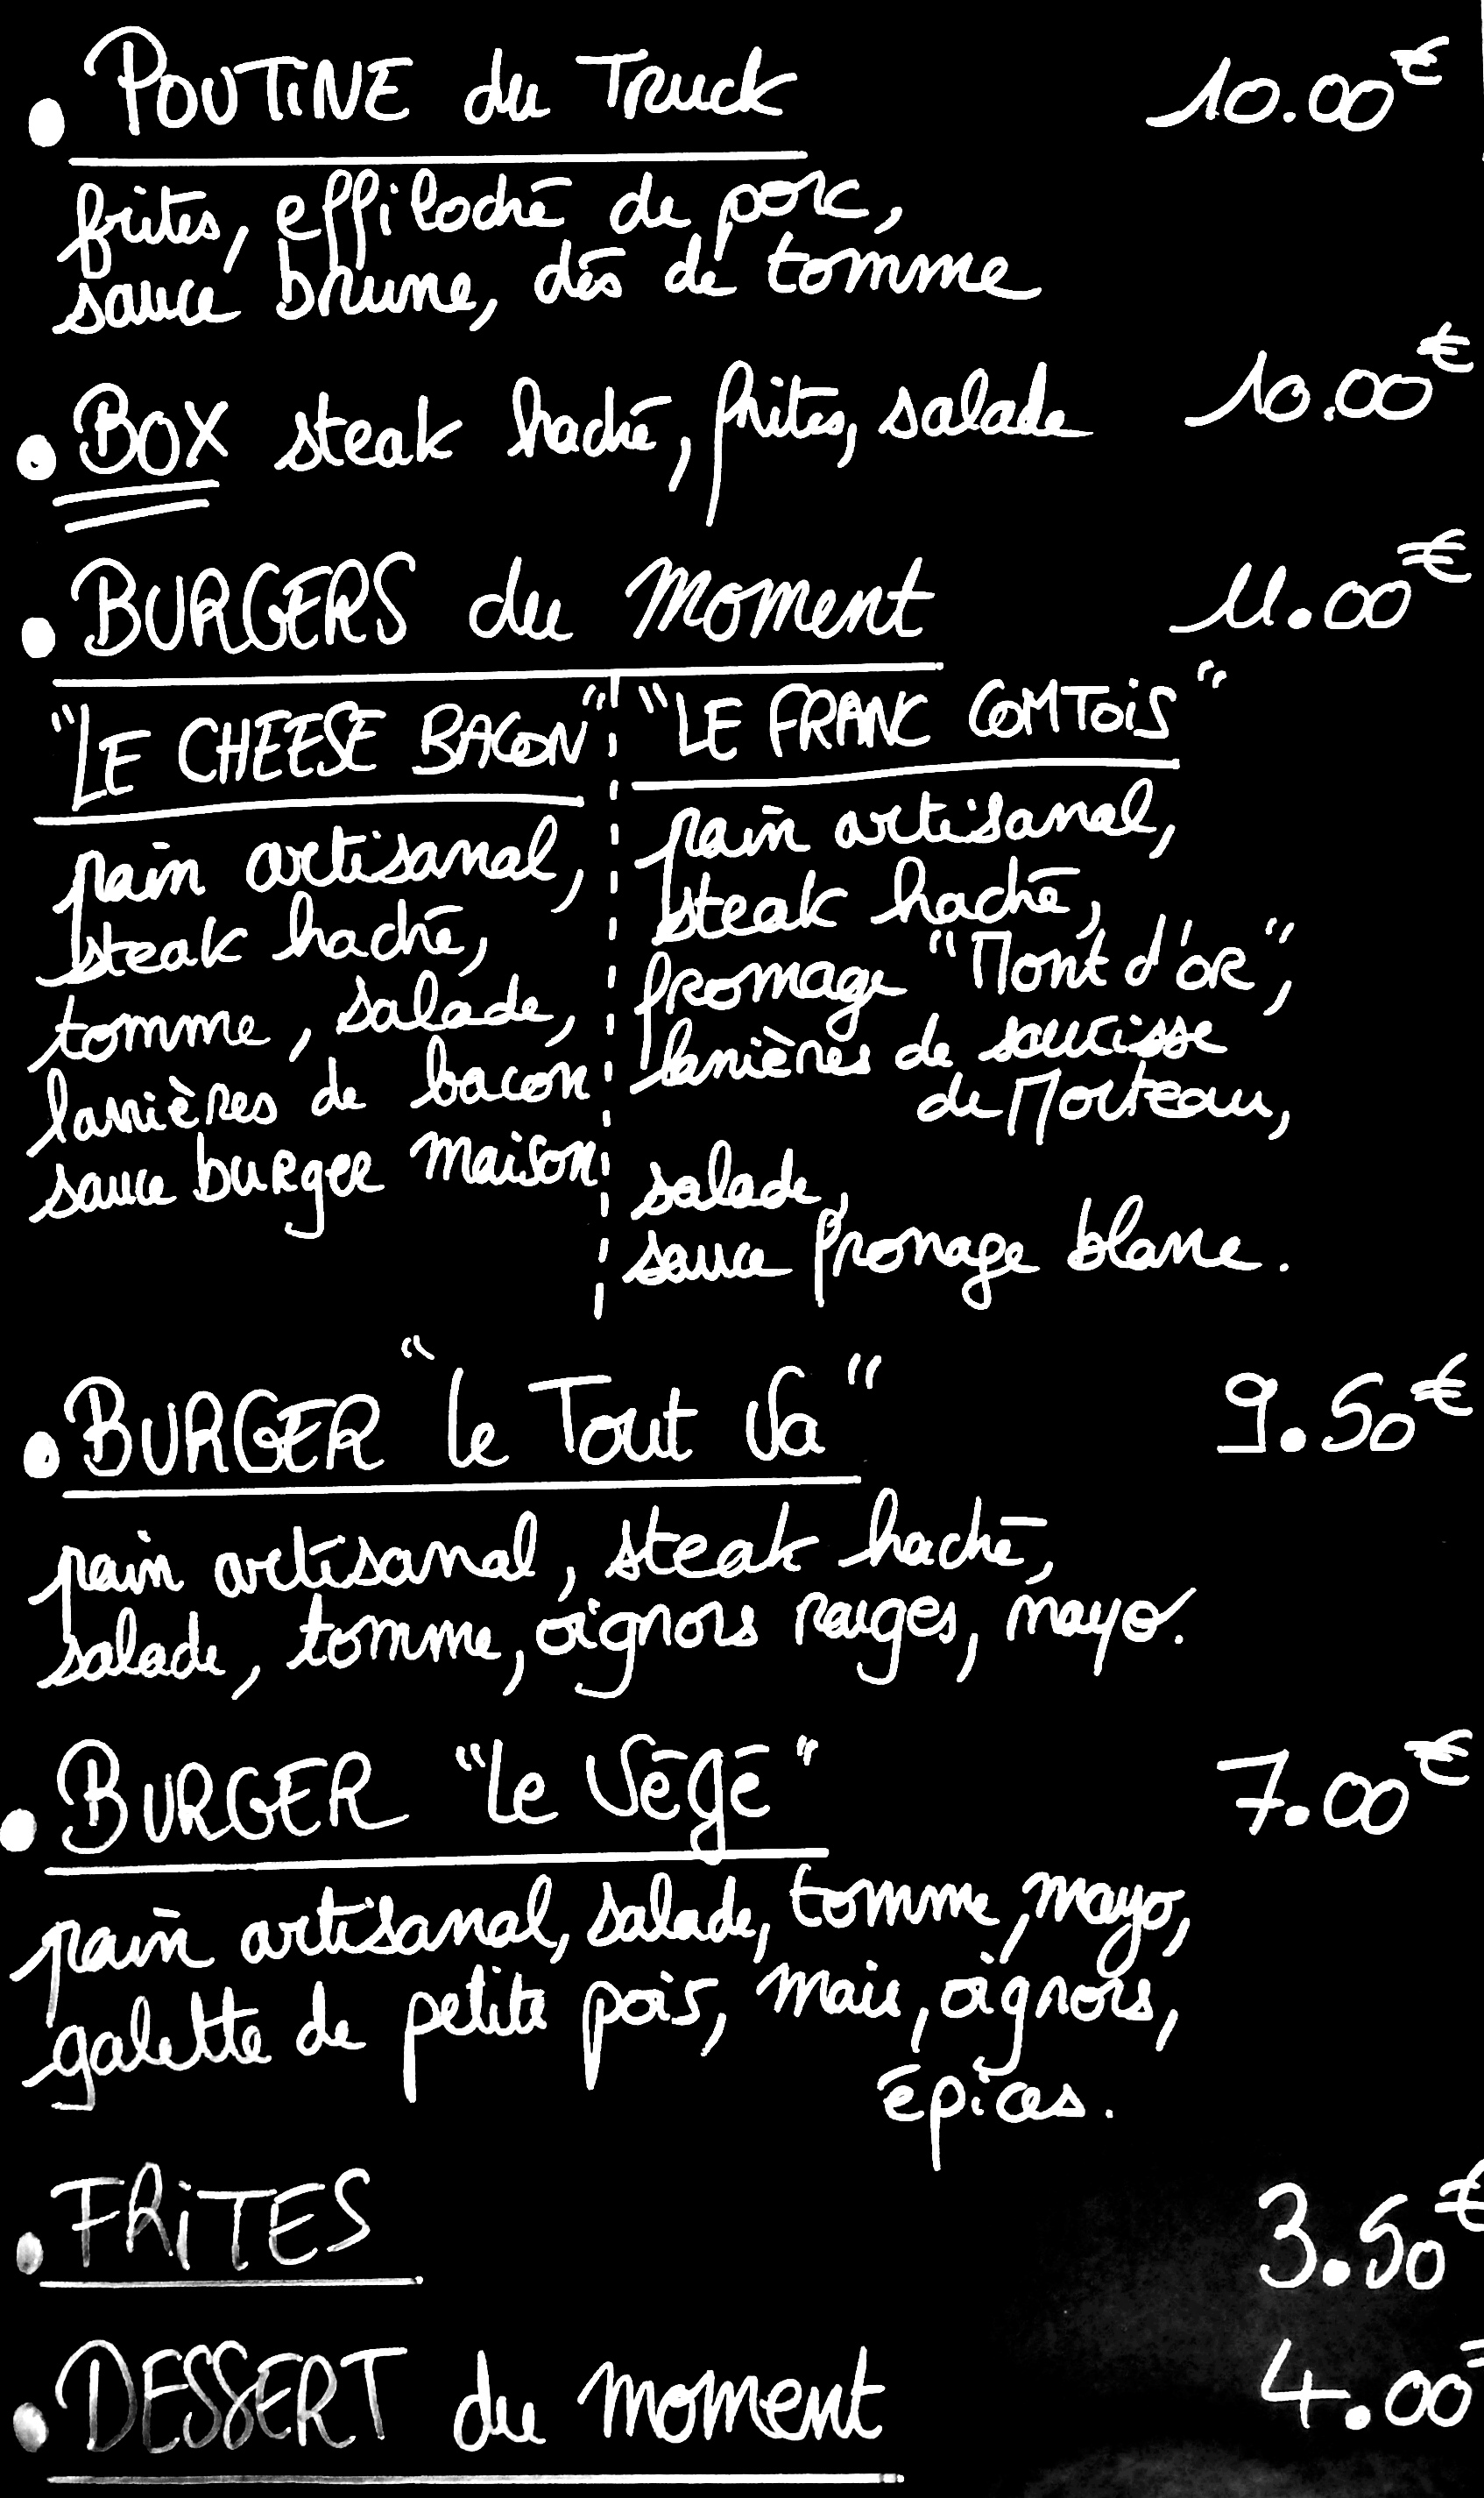 • POUTINE du Truck 10.00€
frites, effiloché de porc,
sauce brune, dés de tomme
• BOX steak haché, frites, salade 10.00€
• BURGERS du moment 11.00€
"LE CHEESE BACON"
pain artisanal,
steak haché,
tomme, salade,
lanières de bacon
sauce burger maison
"LE FRANC COMTOIS"
pain artisanal,
steak haché,
fromage "Mont d'or",
lanières de saucisse
de Morteau,
salade,
sauce fromage blanc.
• BURGER "le Tout Va" 9.50€
pain artisanal, steak haché,
salade, tomme, oignons rouges, mayo.
• BURGER "le Végé" 7.00€
pain artisanal, salade, tomme, mayo,
galette de petits pois, mais, oignons,
épices.
• FRITES 3.50€
• DESSERT du moment 4.00€